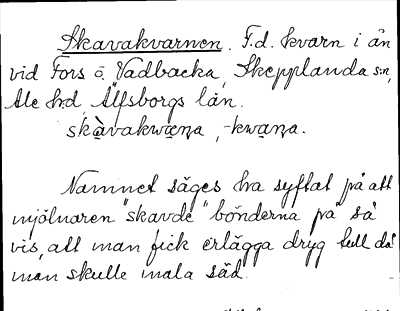 Skavakvarnen. F.d. kvarn i ån
vid Fors ö. Vadbacka, Skepplanda sn,
Ale hd, Älfsborgs län.
skàvakwæṇa, -kwaṇa.
Namnet säges ha syftat på att
mjölnaren "skavde" bönderna på så
vis, att man fick erlägga dryg tull då
man skulle mala säd.